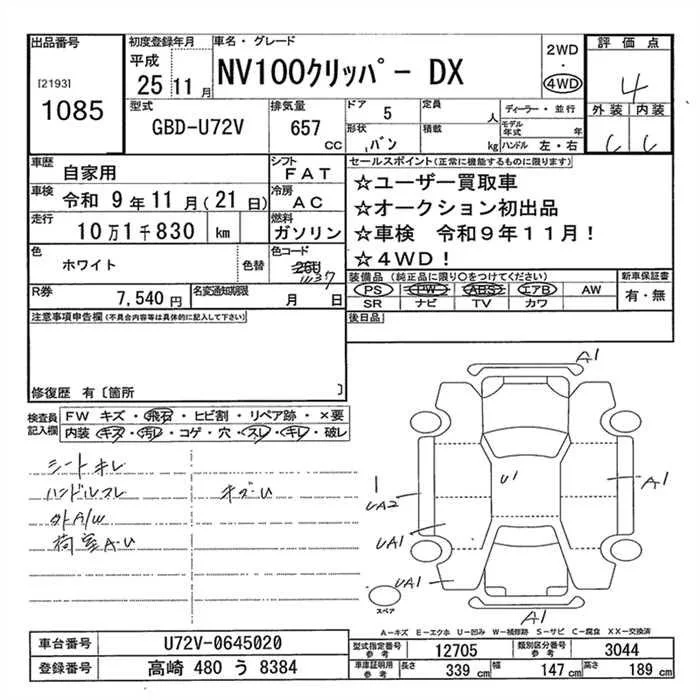 出品番号
[2193]
1085
初度登録年月
平成
25 11月
車名・グレード
NV100クリッパー DX
2WD
・
4WD
評価点
4
外装 内装
C C
型式
GBD-U72V
排気量
657
CC
ドア 5
形状 バン
定員
人
積載
kg
ディーラー・並行
モデル年式 年
ハンドル 左・右
車歴 自家用
シフト FAT
車検 令和 9年11月(21日)
冷房 AC
走行 10万1千830 km
燃料 ガソリン
色 ホワイト
色替
色コード
R券 7,540円
名変通知期限
月 日
セールスポイント(正常に機能するものに限ります)
☆ユーザー買取車
☆オークション初出品
☆車検 令和9年11月!
☆4WD!
装備品(純正品に限り○をつけてください)
PS PW ABS エアB AW
SR ナビ TV カワ
新車保証書
有・無
後日品
注意事項申告欄(不具合内容等は具体的に記入して下さい)
修復歴 有〔箇所 〕
検査員記入欄
FW キズ・飛石・ヒビ割・リペア跡・×要
内装 キズ・汚れ・コゲ・穴・スレ・キレ・破レ
シートキレ
ハンドルスレ
キズU
外A/W
荷室A・U
A1
U1
A1
UA2
UA1
UA1
A1
スペア
A-キズ E-エクボ U-凹み W-補修跡 S-サビ C-腐食 XX-交換済
車台番号 U72V-0645020
登録番号 高崎 480 う 8384
型式指定番号 参考 12705
類別区分番号 参考 3044
車庫証明用 参考
長さ 339 cm
幅 147 cm
高さ 189 cm